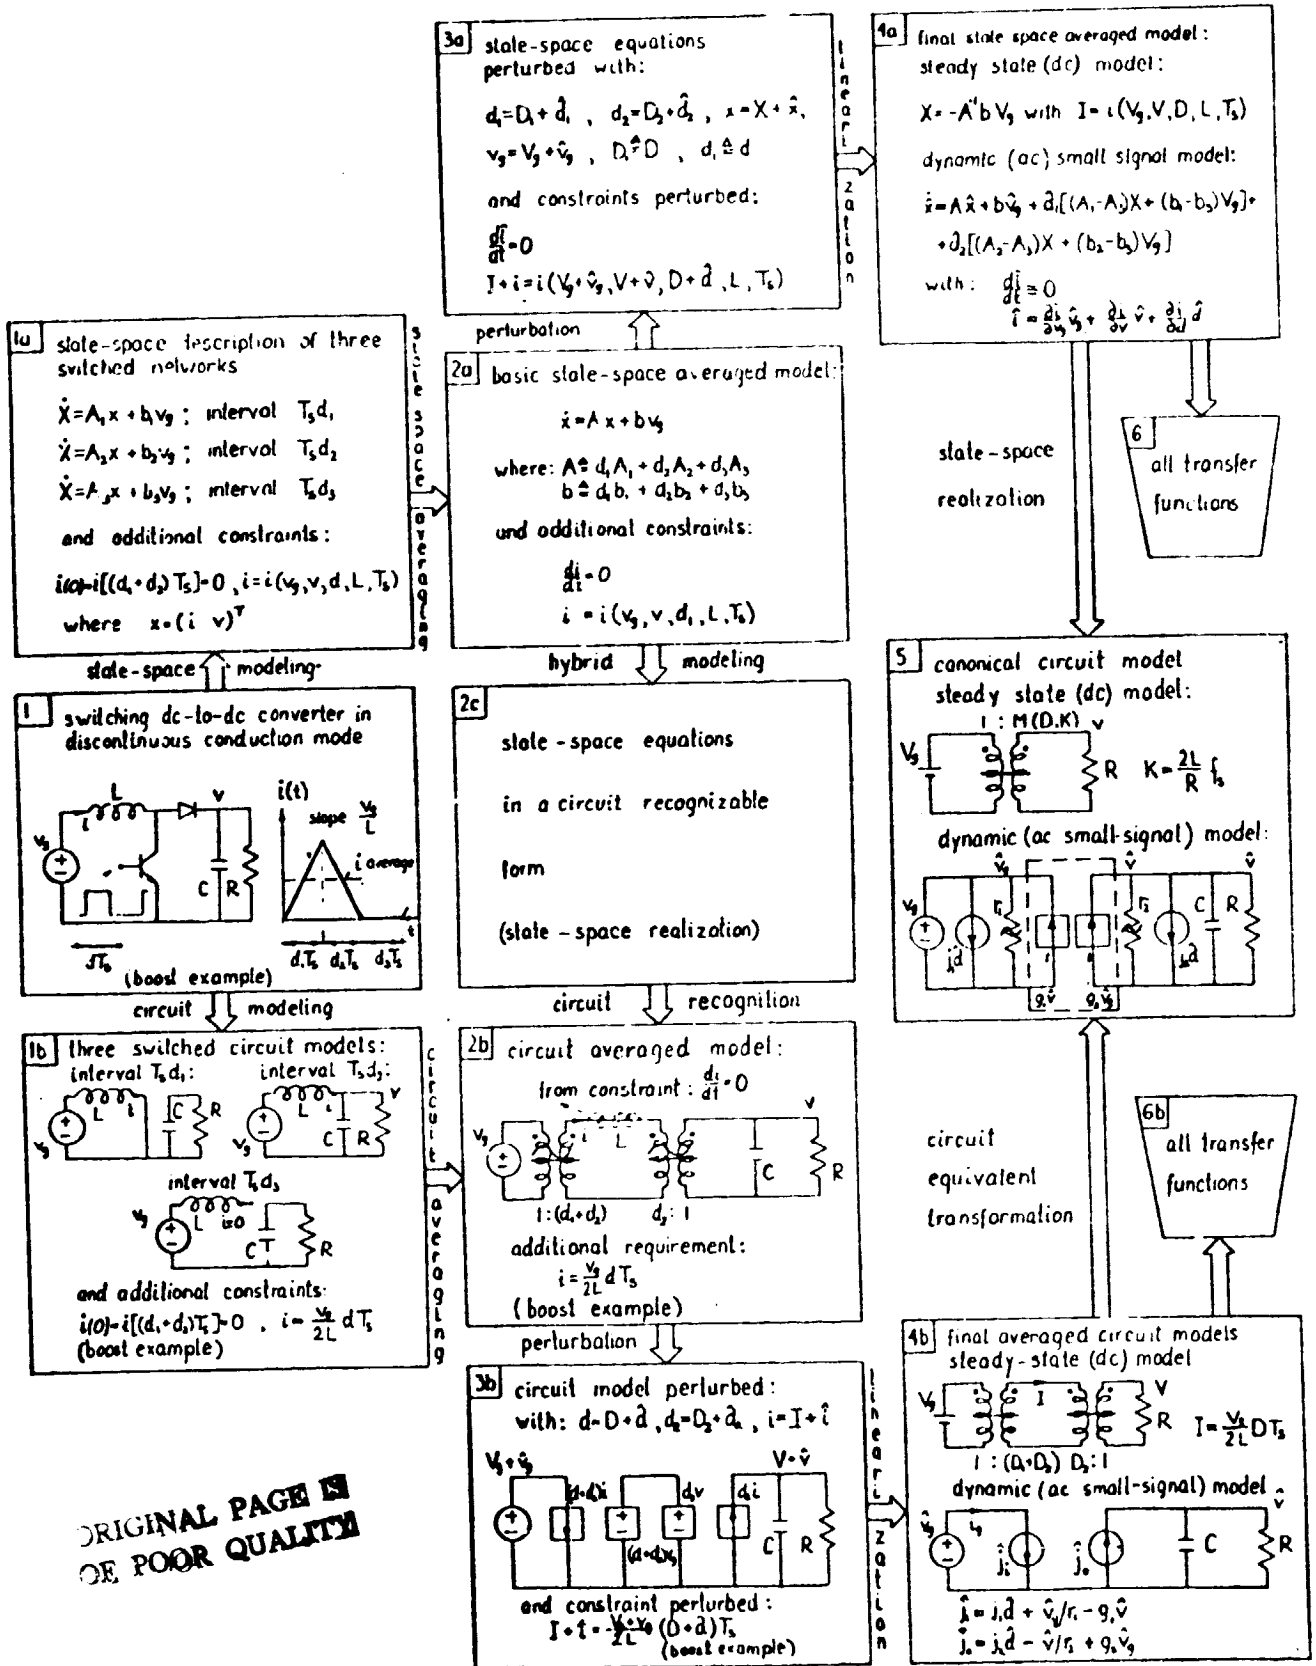 3a
state-space equations
perturbed with:
d₁=D₁+d̂₁ , d₂=D₂+d̂₂ , x=X+x̂,
v_g=V_g+v̂_g , D₁≜D , d₁≜d
and constraints perturbed:
dî/dt=0
I+i=i(V_g+v̂_g,V+v̂,D+d̂,L,T_s)
perturbation
linearization
4a
final state space averaged model:
steady state (dc) model:
X=-A⁻¹bV_g with I=i(V_g,V,D,L,T_s)
dynamic (ac) small signal model:
ẋ=Ax̂+bv̂_g+d̂₁[(A₁-A₃)X+(b₁-b₃)V_g]+
+d̂₂[(A₂-A₃)X+(b₂-b₃)V_g]
with: dî/dt=0
î=∂i/∂v_g v̂_g+∂i/∂v v̂+∂i/∂d d̂
1a
state-space description of three
switched networks
ẋ=A₁x+b₁v_g; interval T_sd₁
ẋ=A₂x+b₂v_g; interval T_sd₂
ẋ=A₃x+b₃v_g; interval T_sd₃
and additional constraints:
i(0)=i[(d₁+d₂)T_s]=0,i=i(v_g,v,d,L,T_s)
where x=(i v)ᵀ
state-space modeling
state space averaging
2a
basic state-space averaged model:
ẋ=Ax+bv_g
where: A≜d₁A₁+d₂A₂+d₃A₃
b≜d₁b₁+d₂b₂+d₃b₃
and additional constraints:
di/dt=0
i=i(v_g,v,d₁,L,T_s)
hybrid modeling
state-space
realization
6
all transfer
functions
1
switching dc-to-dc converter in
discontinuous conduction mode
L
i
v
v_g
C
R
i(t)
slope v_g/L
i average
t
dT_s
d₁T_s d₂T_s d₃T_s
(boost example)
circuit modeling
2c
state-space equations
in a circuit recognizable
form
(state-space realization)
circuit recognition
5
canonical circuit model
steady state (dc) model:
1:M(D,K) V
V_g
R
K=2L/R f_s
dynamic (ac small-signal) model:
v̂_g
v̂
v̂
v_g
j₁d̂
r₁
g₁v̂
g₂v̂_g
r₂
j₂d̂
C
R
1b
three switched circuit models:
interval T_sd₁: interval T_sd₂:
v_g L i C R
v_g L i C R v
interval T_sd₃
v_g L i=0 C R
and additional constraints:
i(0)=i[(d₁+d₂)T_s]=0 , i=v_g/2L dT_s
(boost example)
circuit averaging
2b
circuit averaged model:
from constraint: di/dt=0
v_g
i
L
v
C
R
1:(d₁+d₂) d₂:1
additional requirement:
i=v_g/2L dT_s
(boost example)
perturbation
circuit
equivalent
transformation
6b
all transfer
functions
3b
circuit model perturbed:
with: d=D+d̂ ,d₂=D₂+d̂₂,i=I+î
V_g+v̂_g
(d+d₂)i
(d+d₂)v_g
d₂v
d₂i
V+v̂
C
R
and constraint perturbed:
I+î=V_g+v̂_g/2L (D+d̂)T_s
(boost example)
linearization
4b
final averaged circuit models
steady-state (dc) model
V_g
I
V
R
I=V_g/2L DT_s
1:(D₁+D₂) D₂:1
dynamic (ac small-signal) model
v̂_g
i_g
ĵᵢ
ĵₒ
C
R
v̂
ĵᵢ=j₁d̂+v̂_g/r₁-g₁v̂
ĵₒ=j₂d̂-v̂/r₂+g₂v̂_g
ORIGINAL PAGE IS
OF POOR QUALITY